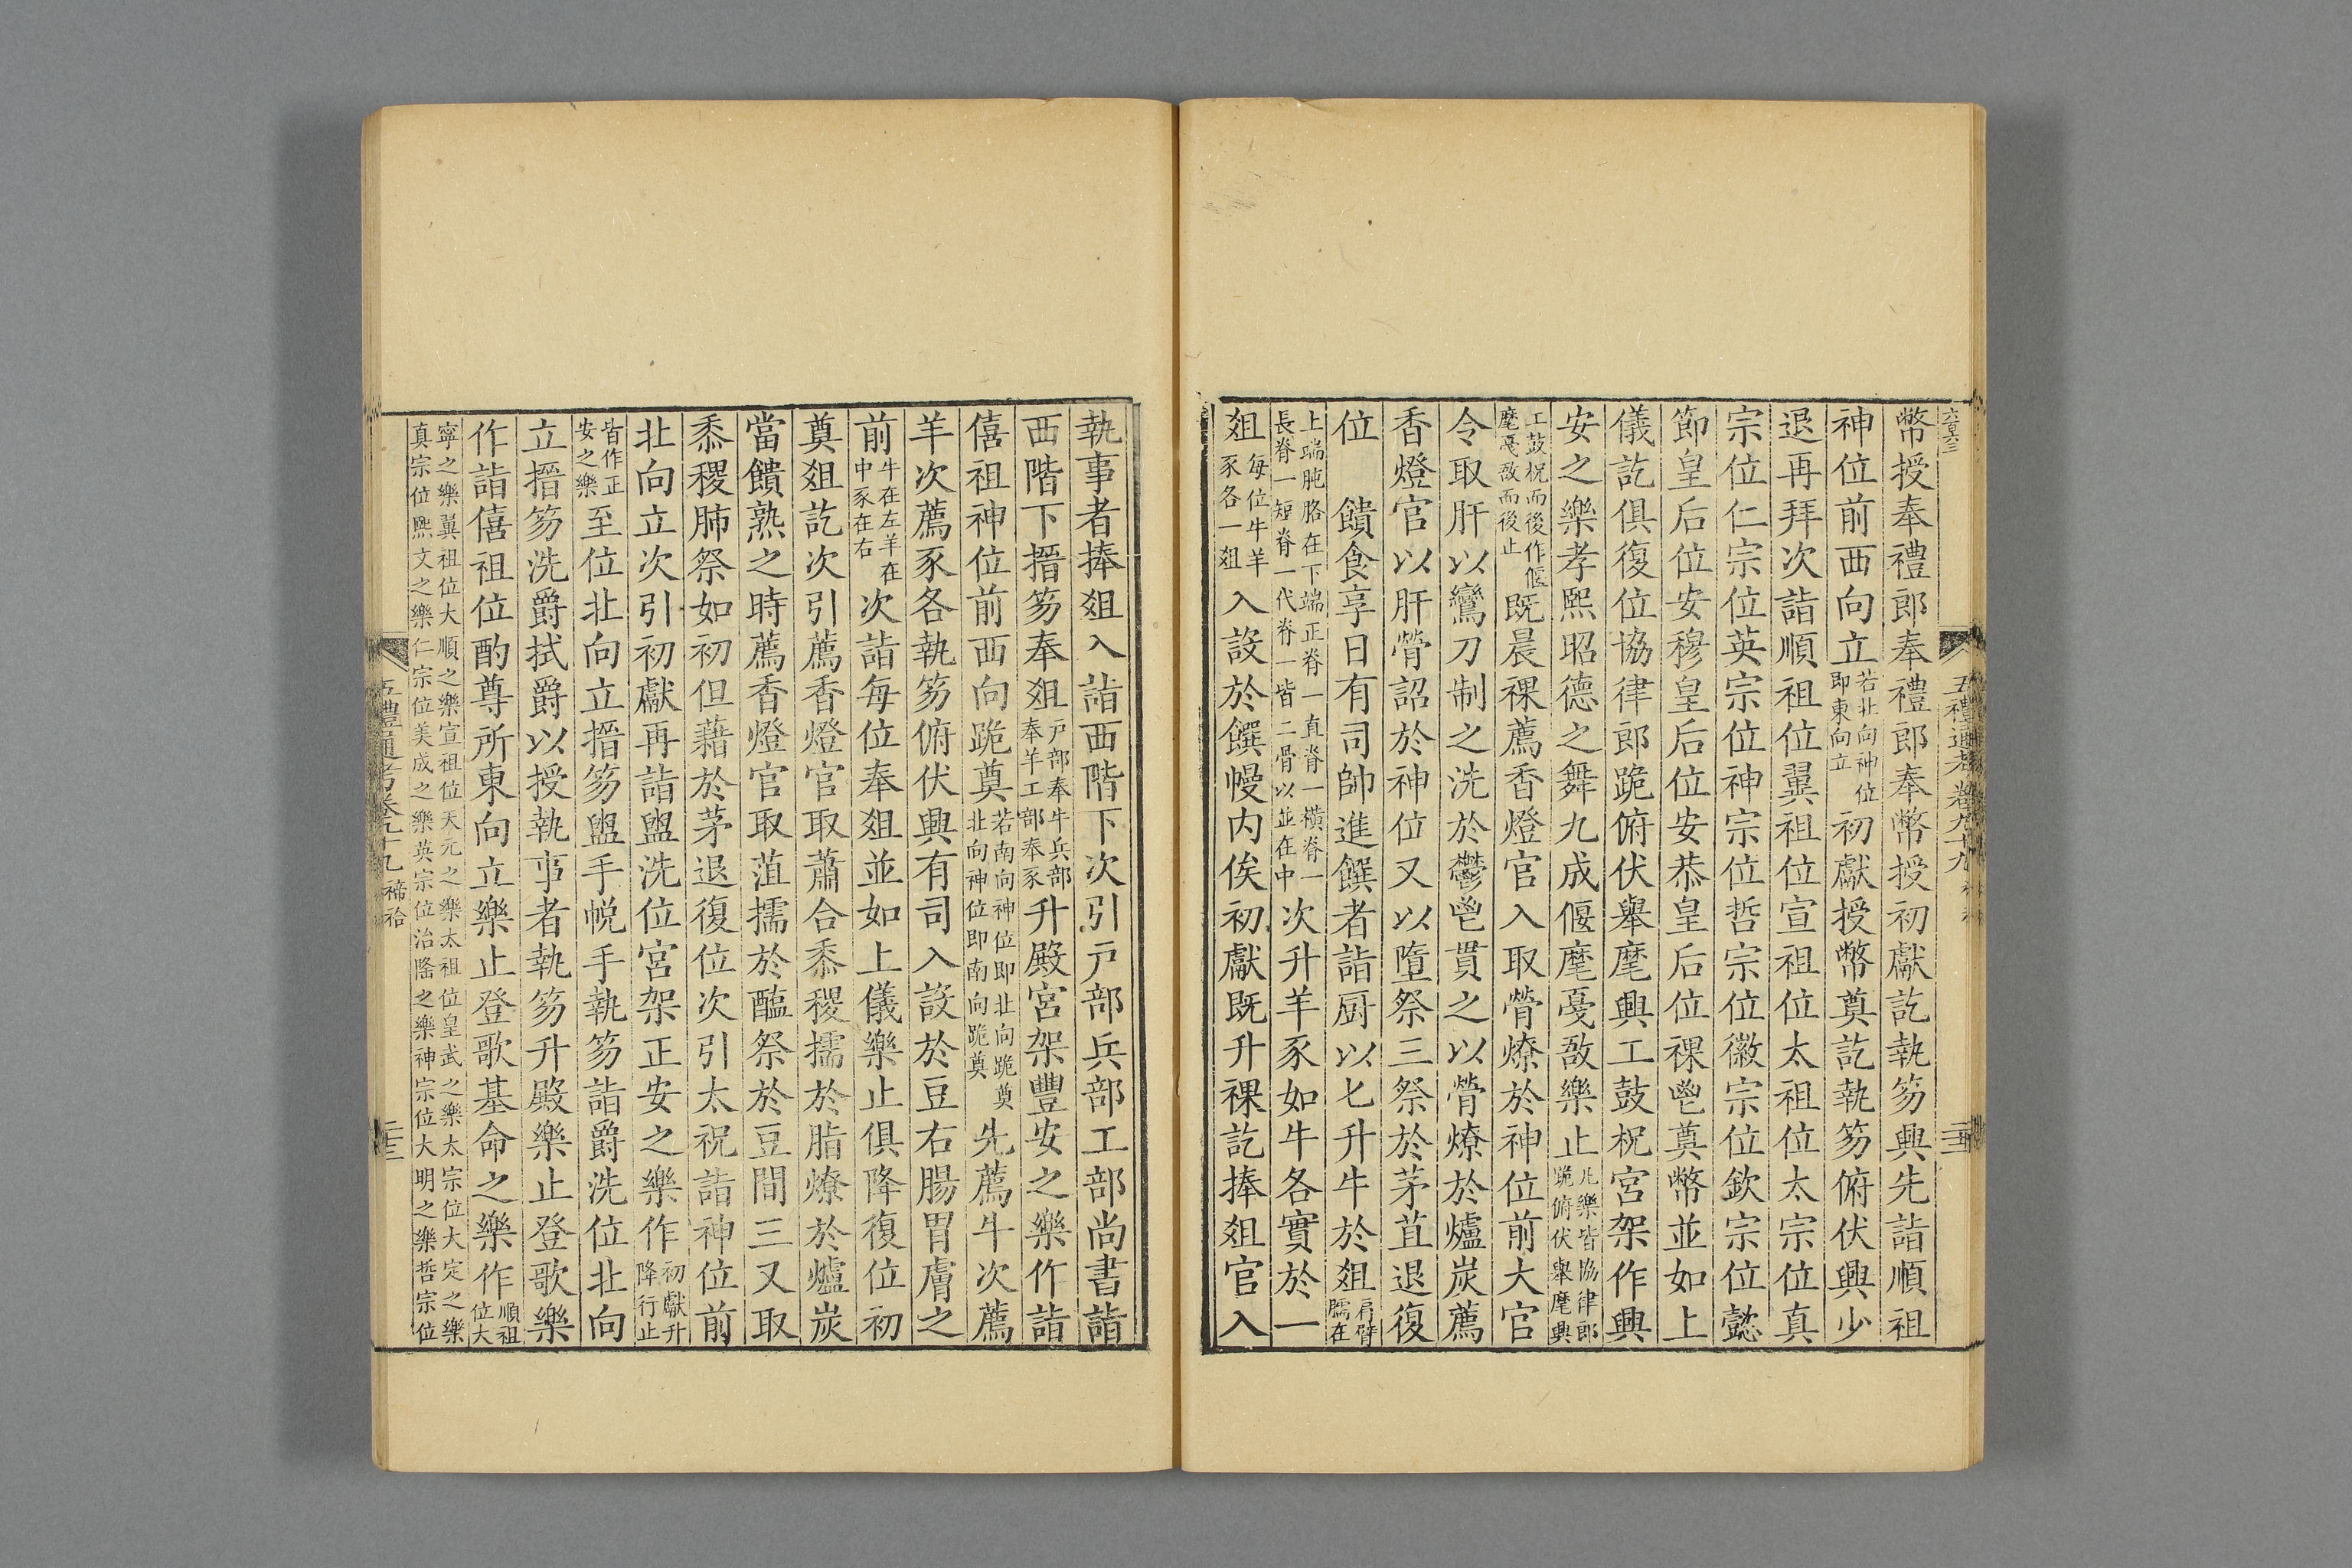 六百六三
五禮通考卷九十九
幣授奉禮郎奉禮郎奉幣授初獻訖執笏興先詣順祖
神位前西向立若北向神位即東向立初獻授幣奠訖執笏俯伏興少
退再拜次詣順祖位翼祖位宣祖位太祖位太宗位真
宗位仁宗位英宗位神宗位哲宗位徽宗位欽宗位懿
節皇后位安穆皇后位安恭皇后位祼鬯奠幣並如上
儀訖俱復位協律郎跪俯伏舉麾興工鼓柷宮架作興
安之樂孝熙昭德之舞九成偃麾戛敔樂止凡樂皆協律郎跪俯伏舉麾興
工鼓柷而後作偃麾戞敔而後止既晨祼薦香燈官入取膋燎於神位前大官
令取肝以鸞刀制之洗於鬱鬯貫之以膋燎於爐炭薦
香燈官以肝膋詔於神位又以墮祭三祭於茅苴退復
位　饋食享日有司帥進饌者詣厨以匕升牛於俎肩臂臑在
上端肫胳在下端正脊一直脊一橫脊一長脊一短脊一代脊一皆二骨以並在中次升羊豕如牛各實於一
俎每位牛羊豕各一俎入設於饌幔内俟初獻既升祼訖捧俎官入
執事者捧俎入詣西階下次引戸部兵部工部尚書詣
西階下搢笏奉俎戸部奉牛兵部奉羊工部奉豕升殿宮架豐安之樂作詣
僖祖神位前西向跪奠若南向神位即北向跪奠北向神位即南向跪奠先薦牛次薦
羊次薦豕各執笏俯伏興有司入設於豆右腸胃膚之
前牛在左羊在中豕在右次詣每位奉俎並如上儀樂止俱降復位初
奠俎訖次引薦香燈官取蕭合黍稷擩於脂燎於爐炭
當饋熟之時薦香燈官取菹擩於醢祭於豆間三又取
黍稷肺祭如初但藉於茅退復位次引太祝詣神位前
北向立次引初獻再詣盥洗位宮架正安之樂作初獻升降行止
皆作正安之樂至位北向立搢笏盥手帨手執笏詣爵洗位北向
立搢笏洗爵拭爵以授執事者執笏升殿樂止登歌樂
作詣僖祖位酌尊所東向立樂止登歌基命之樂作順祖位大
寧之樂翼祖位大順之樂宣祖位天元之樂太祖位皇武之樂太宗位大定之樂
真宗位熙文之樂仁宗位美成之樂英宗位治隆之樂神宗位大明之樂哲宗位
五禮通考卷九十九　禘祫